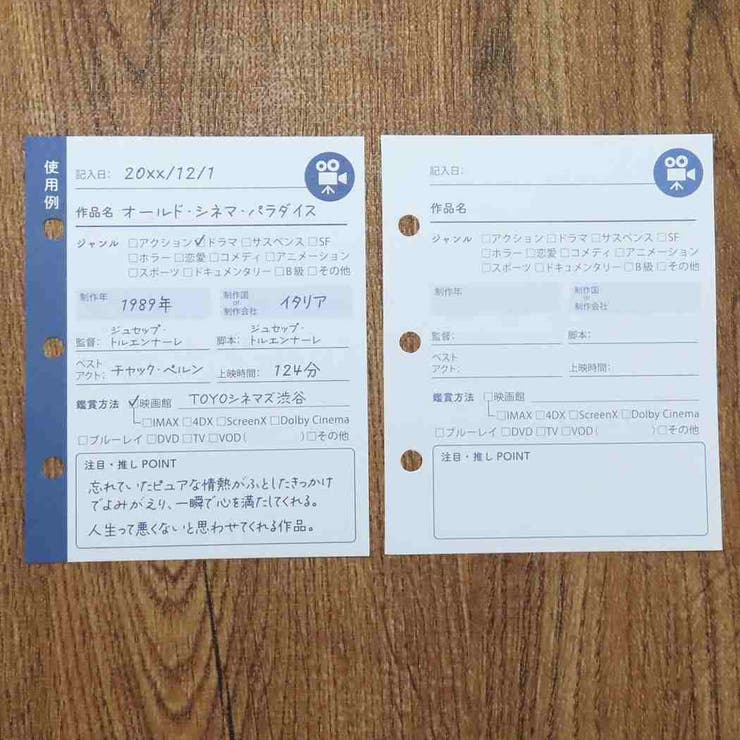 使用例
記入日: 20xx/12/1
作品名 オールド・シネマ・パラダイス
ジャンル □アクション ☑ドラマ □サスペンス □SF
□ホラー □恋愛 □コメディ □アニメーション
□スポーツ □ドキュメンタリー □B級 □その他
制作年 1989年 制作国 or 制作会社 イタリア
監督: ジュセップ・トルエンナーレ 脚本: ジュセップ・トルエンナーレ
ベストアクト: チャック・ペルン 上映時間: 124分
鑑賞方法 ☑映画館 TOYOシネマズ渋谷
□IMAX □4DX □ScreenX □Dolby Cinema
□ブルーレイ □DVD □TV □VOD( ) □その他
注目・推しPOINT
忘れていたピュアな情熱がふとしたきっかけ
でよみがえり、一瞬で心を満たしてくれる。
人生って悪くないと思わせてくれる作品。
記入日:
作品名
ジャンル □アクション □ドラマ □サスペンス □SF
□ホラー □恋愛 □コメディ □アニメーション
□スポーツ □ドキュメンタリー □B級 □その他
制作年 制作国 or 制作会社
監督: 脚本:
ベストアクト: 上映時間:
鑑賞方法 □映画館
□IMAX □4DX □ScreenX □Dolby Cinema
□ブルーレイ □DVD □TV □VOD( ) □その他
注目・推しPOINT